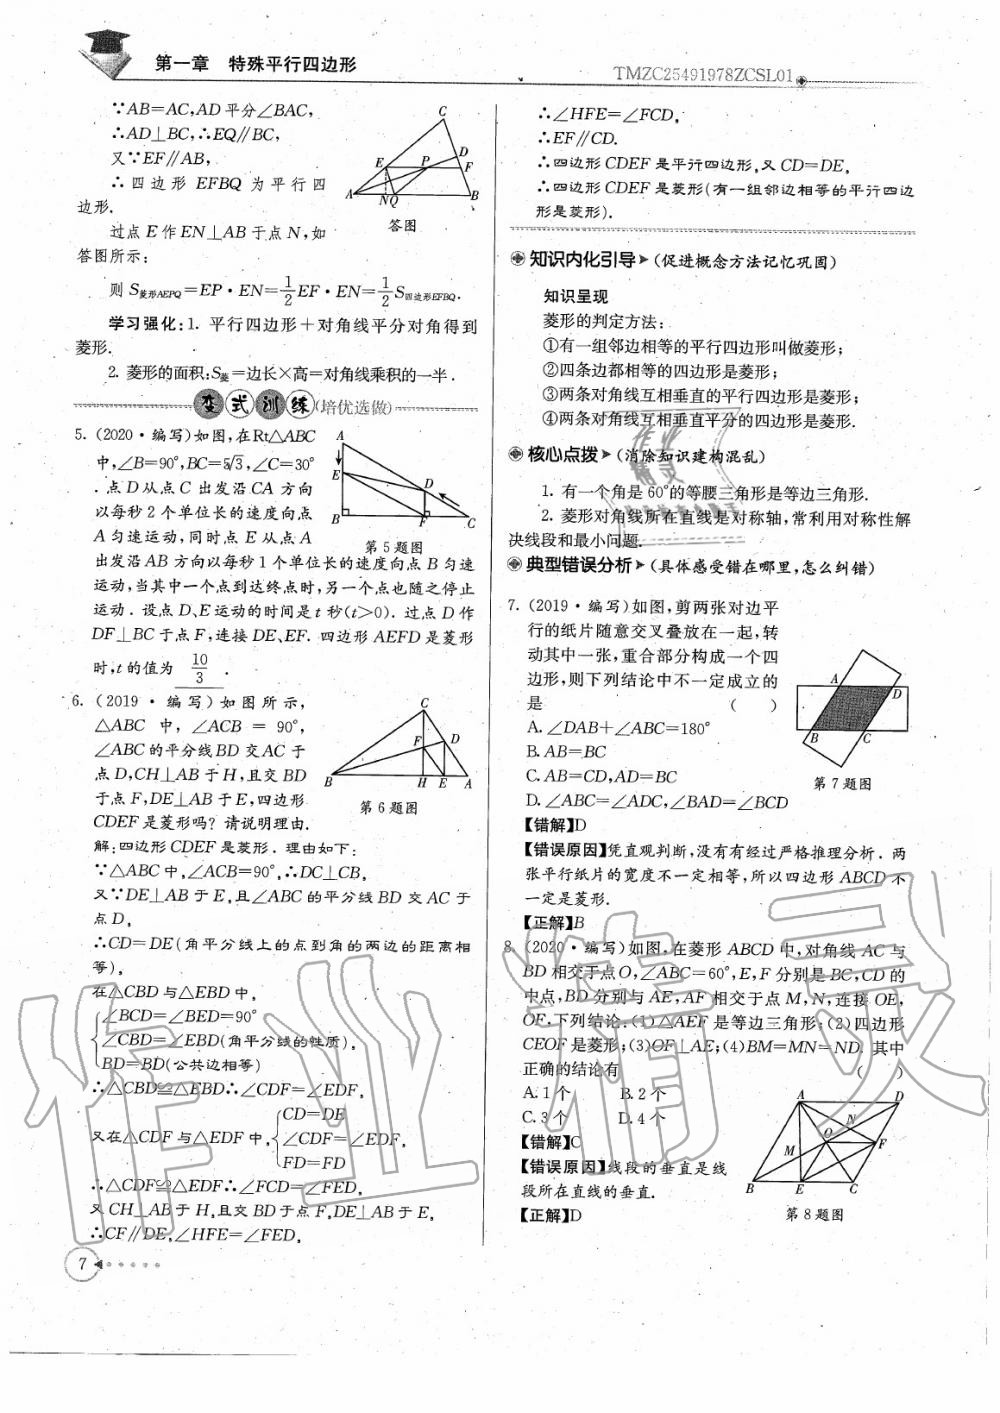 第一章 特殊平行四边形
TMZC25491978ZCSL01
∵AB=AC,AD平分∠BAC,
∴AD⊥BC,∴EQ∥BC,
又∵EF∥AB,
∴四边形 EFBQ 为平行四
边形.
过点E作EN⊥AB于点N,如
答图所示:
C
D
E
P
F
A
NQ
B
答图
则 S菱形AEPQ=EP·EN=1/2EF·EN=1/2S四边形EFBQ.
学习强化:1. 平行四边形+对角线平分对角得到
菱形.
2. 菱形的面积:S菱=边长×高=对角线乘积的一半.
变式训练(培优选做)
5. (2020·编写)如图,在Rt△ABC
中,∠B=90°,BC=5√3,∠C=30°
.点D从点C出发沿CA方向
以每秒2个单位长的速度向点
A匀速运动,同时点E从点A
出发沿AB方向以每秒1个单位长的速度向点B匀速
运动,当其中一个点到达终点时,另一个点也随之停止
运动.设点D、E运动的时间是t秒(t>0).过点D作
DF⊥BC于点F,连接DE、EF.四边形AEFD是菱形
时,t的值为 10/3 .
A
E
D
B
F
C
第5题图
6. (2019·编写)如图所示,
△ABC中,∠ACB=90°,
∠ABC的平分线BD交AC于
点D,CH⊥AB于H,且交BD
于点F,DE⊥AB于E,四边形
CDEF是菱形吗?请说明理由.
C
F
D
B
H
E
A
第6题图
解:四边形CDEF是菱形.理由如下:
∵△ABC中,∠ACB=90°,∴DC⊥CB,
又∵DE⊥AB于E,且∠ABC的平分线BD交AC于
点D,
∴CD=DE(角平分线上的点到角的两边的距离相
等),
在△CBD与△EBD中,
∠BCD=∠BED=90°
∠CBD=∠EBD(角平分线的性质),
BD=BD(公共边相等)
∴△CBD≌△EBD∴∠CDF=∠EDF,
CD=DE
又在△CDF与△EDF中,∠CDF=∠EDF,
FD=FD
∴△CDF≌△EDF∴∠FCD=∠FED,
又CH⊥AB于H,且交BD于点F,DE⊥AB于E,
∴CF∥DE,∠HFE=∠FED,
7
∴∠HFE=∠FCD,
∴EF∥CD.
∴四边形CDEF是平行四边形,又CD=DE,
∴四边形CDEF是菱形(有一组邻边相等的平行四边
形是菱形).
知识内化引导(促进概念方法记忆巩固)
知识呈现
菱形的判定方法:
①有一组邻边相等的平行四边形叫做菱形;
②四条边都相等的四边形是菱形;
③两条对角线互相垂直的平行四边形是菱形;
④两条对角线互相垂直平分的四边形是菱形.
核心点拨(消除知识建构混乱)
1. 有一个角是60°的等腰三角形是等边三角形.
2. 菱形对角线所在直线是对称轴,常利用对称性解
决线段和最小问题.
典型错误分析(具体感受错在哪里,怎么纠错)
7. (2019·编写)如图,剪两张对边平
行的纸片随意交叉叠放在一起,转
动其中一张,重合部分构成一个四
边形,则下列结论中不一定成立的
是 ( )
A. ∠DAB+∠ABC=180°
B. AB=BC
C. AB=CD,AD=BC
D. ∠ABC=∠ADC,∠BAD=∠BCD
A
D
B
C
第7题图
【错解】D
【错误原因】凭直观判断,没有有经过严格推理分析.两
张平行纸片的宽度不一定相等,所以四边形ABCD不
一定是菱形.
【正解】B
8. (2020·编写)如图,在菱形ABCD中,对角线AC与
BD相交于点O,∠ABC=60°,E,F分别是BC,CD的
中点,BD分别与AE,AF相交于点M,N,连接OE,
OF.下列结论:(1)△AEF是等边三角形;(2)四边形
CEOF是菱形;(3)OF⊥AE;(4)BM=MN=ND.其中
正确的结论有 ( )
A. 1个 B. 2个
C. 3个 D. 4个
【错解】C
【错误原因】线段的垂直是线
段所在直线的垂直.
【正解】D
A
D
N
O
F
M
B
E
C
第8题图
作业精灵
作业精灵